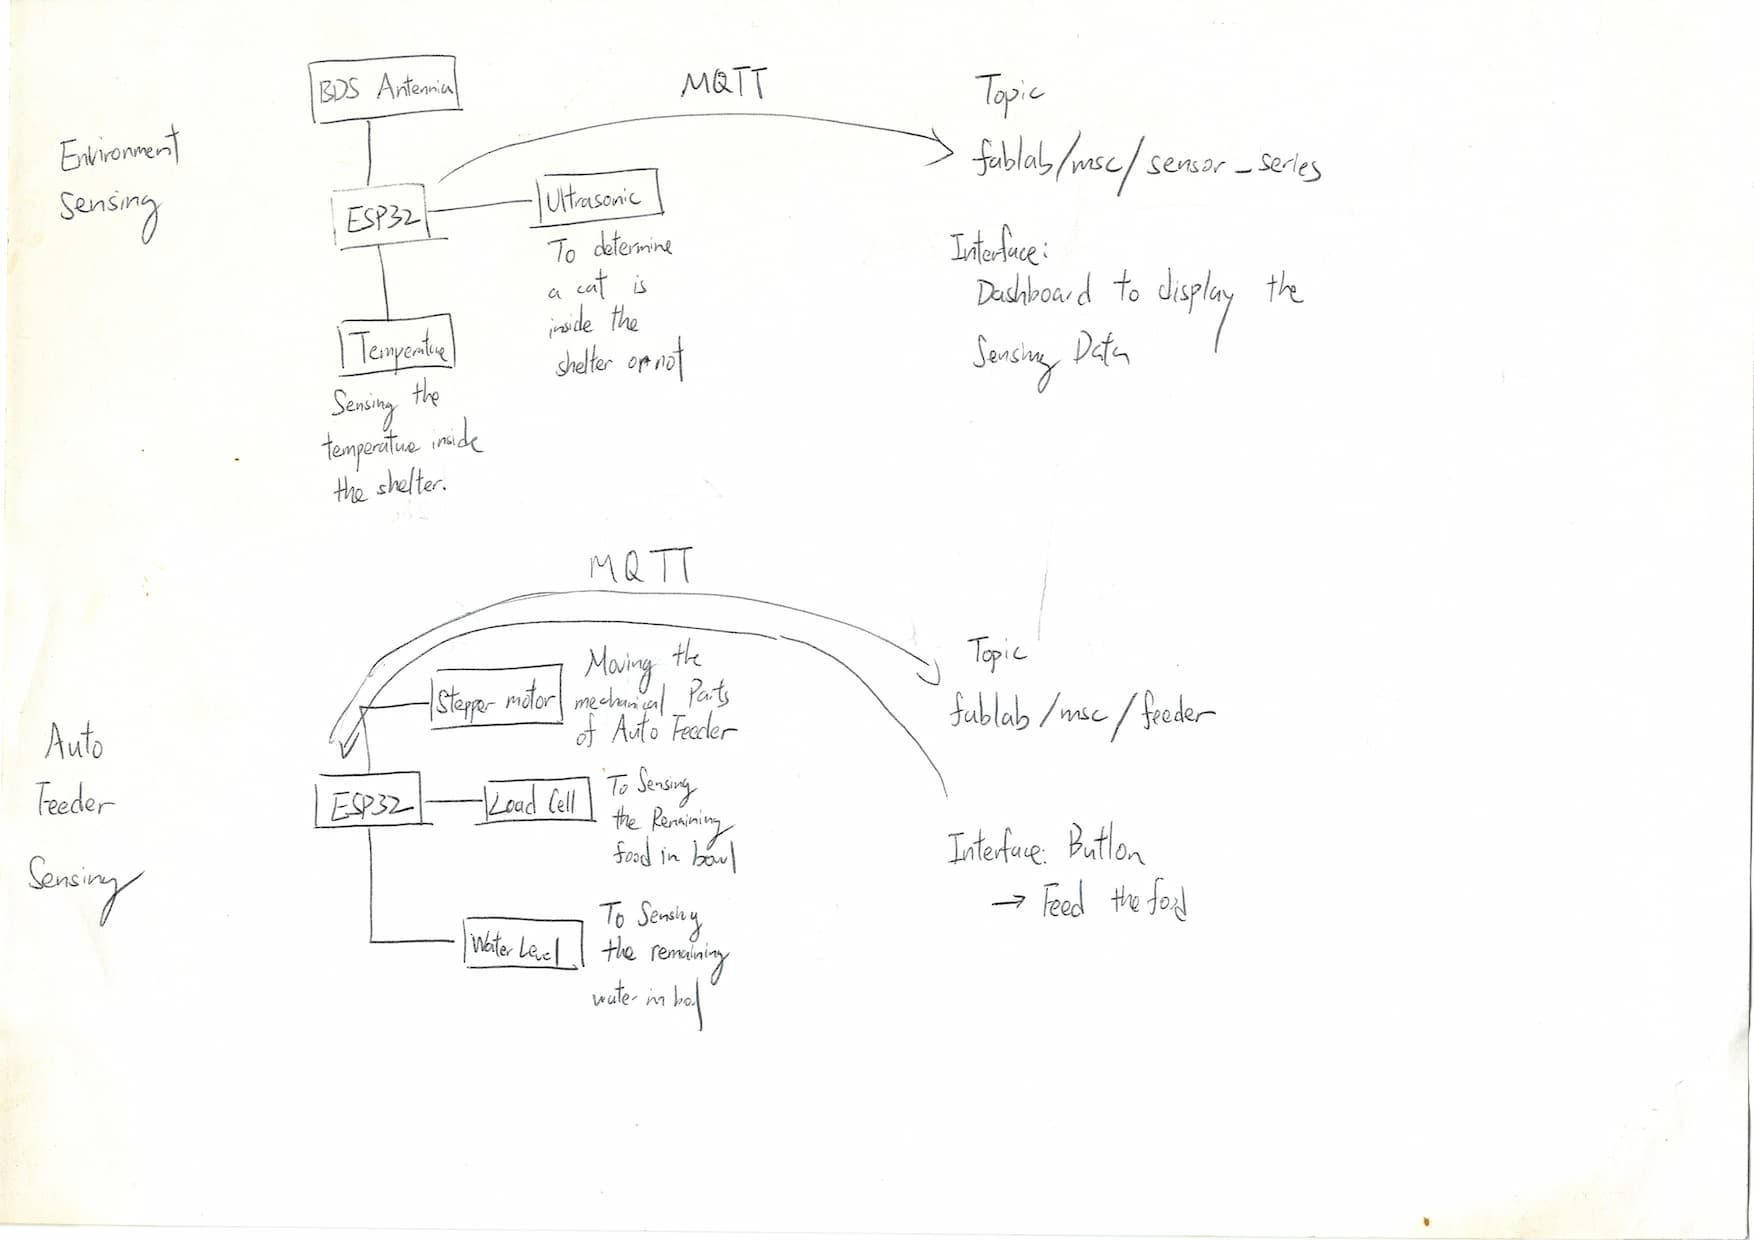 Environment
Sensing
BDS Antennia
ESP32
Ultrasonic
To determine
a cat is
inside the
shelter or not
Temperature
Sensing the
temperature inside
the shelter.
MQTT
Topic
fablab/msc/sensor_series
Interface:
Dashboard to display the
Sensing Data
MQTT
Auto
Feeder
Sensing
Stepper motor
Moving the
mechanical Parts
of Auto Feeder
ESP32
Load Cell
To Sensing
the Remaining
food in bowl
Water Level
To Sensing
the remaining
water in
Topic
fablab/msc/feeder
Interface: Button
→ Feed the food